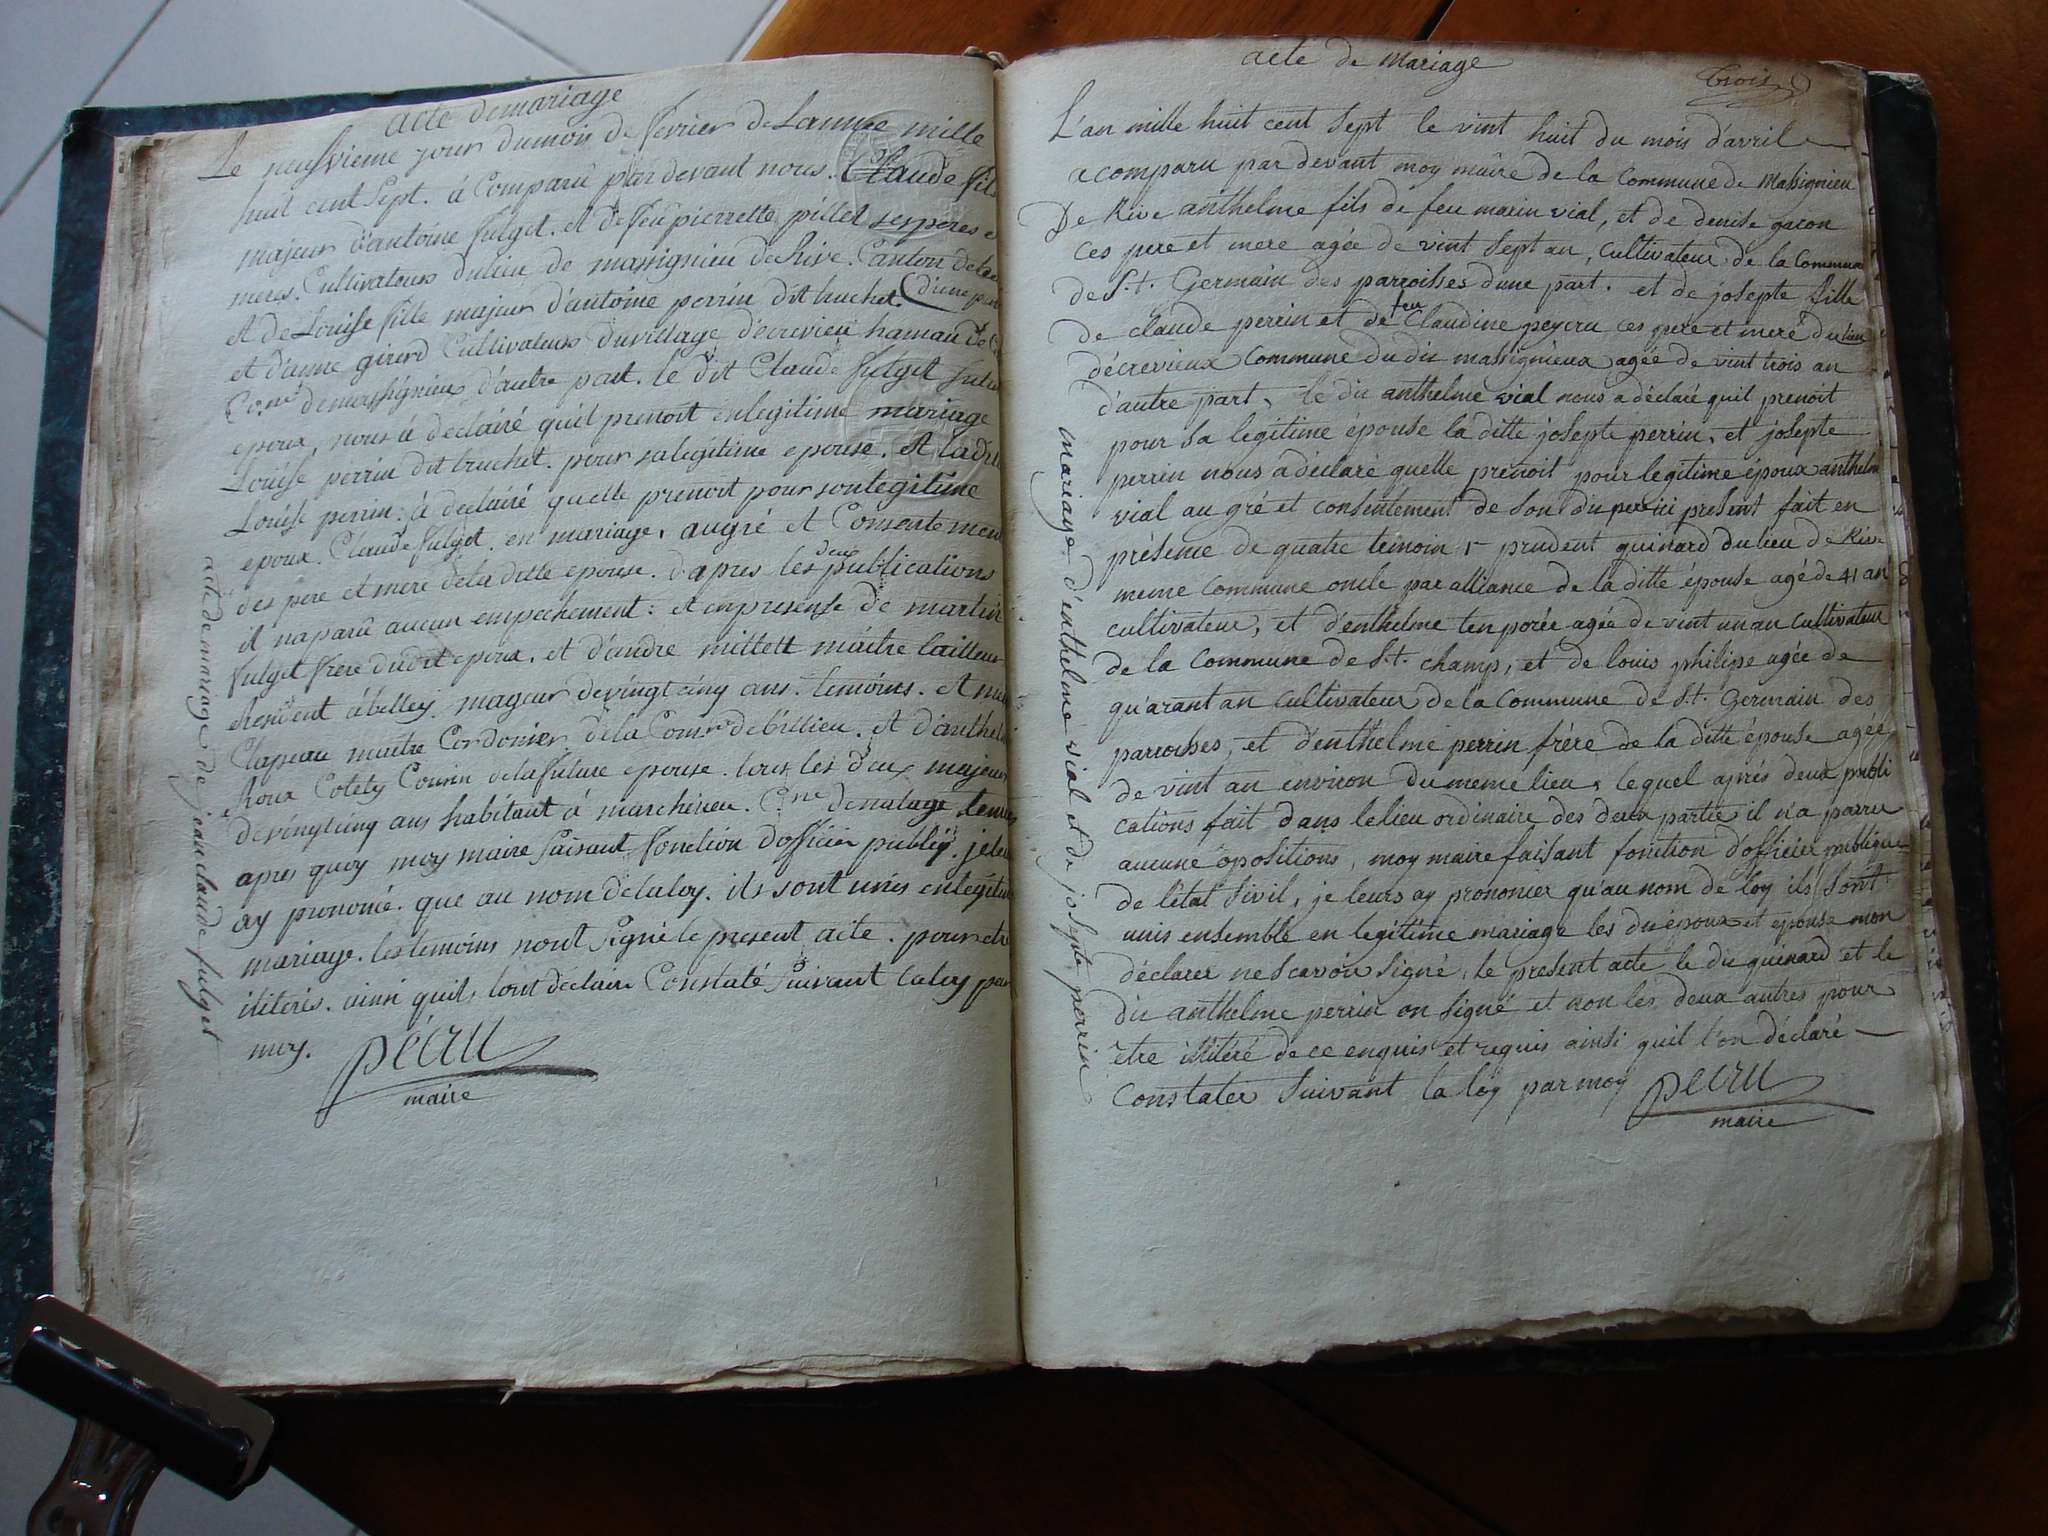 acte demariage
Le neufvieme jour dumois de fevrier de Lannee mille
huit cent Sept. à Comparû par devant nous. Claude fils
majeur d'antoine fulget. et de feu pierrette pillet ses peres e
meres. Cultivateurs dulieu de massignieu de Rive. Canton de
et de Louise fille majeur d'antoine perrin dit bruchet. d'une part
et d'anne girerd Cultivateurs duvillage d'ecrevieu hamau de
Com.e demassignieu d'autre part. le dit Claude fulget futur
epoux, nous a declairé quil prenoit enlegitime mariage
Louise perrin dit bruchet. pour salegitime epouse. et ladit
Louise perrin. à declairé quelle prenoit pour sonlegitime
epoux. Claude fulget. en mariage. augré et Consentemen
des pere et mere dela ditte epouse. d'apres les deux publications
il naparû aucun empechement: et enpresense de martin
fulget frere dudit epoux. et d'andre millett maitre tailleur
Resident à belley. majeur devingt cinq ans. temoins. et
Clapeau maitre Cordonier de la Com.e debillieu. et d'anthel
Roux Cotety Cousin delafuture epouse. tous les deux majeur
devingt cinq ans habitant à marchérieu. C.ne denatage temoi
apres quoy moy maire faisant fonction d'officier public. jeleu
ay prononcé. que au nom de laloy. ils sont unis enlegitim
mariage. les temoins nont signé le present acte. pour etre
iliterés. ainsi quils lont déclairé Constaté suivant laloy par
moy. pécru
maire
acte de mariage de jean claude fulget
acte de Mariage
trois
L'an mille huit cent Sept le vint huit du mois d'avril
a comparu par devant moy maire de la Commune de Massignieu
De Rive anthelme fils de feu marin vial, et de denise gacon
ces pere et mere agée de vint Sept an, cultivateur de la Commune
de S.t. Germain des parroisses dune part. et de josepte fille
de claude perrin et de feu Claudine peycru ces pere et mere du lieu
décrevieux Commune du dit massignieux agée de vint trois an
d'autre part, le dit anthelme vial nous a déclaré quil prenoit
pour Sa legitime épouse la ditte josepte perrin, et josepte
perrin nous a déclaré quelle prenoit pour legitime époux anthelm
vial au gré et consentement de Son du pere ici présent fait en
présence de quatre temoin prudent guinard du lieu de Rive
meme commune oncle par alliance de la ditte épouse agé de 41 an
cultivateur, et d'enthelme tenporée agée de vint un an cultivateur
de la Commune de S.t. champ, et de louis philipe agée de
qu'arant an cultivateur de la commune de S.t. Germain des
parroisses, et d'enthelme perrin frére de la ditte épouse agée
de vint an environ du meme lieu, lequel aprés deux publi
cations fait dans le lieu ordinaire des deux partie il n'a parru
aucune opositions, moy maire faisant fonction d'officier publique
de l'état Sivil, je leurs ay prononier qu'au nom de loy ils Sont
unis ensemble en legitime mariage les du époux et épouse mon
déclarer ne Scavoir Signé, le present acte le du guinard et le
du anthelme perrin on Signé et non les deux autres pour
être illiteré de ce enquis et requis ainsi quil l'on déclaré
Constater Suivant la loy par moy pecru
maire
mariage d'enthelme vial et de josepte perrin